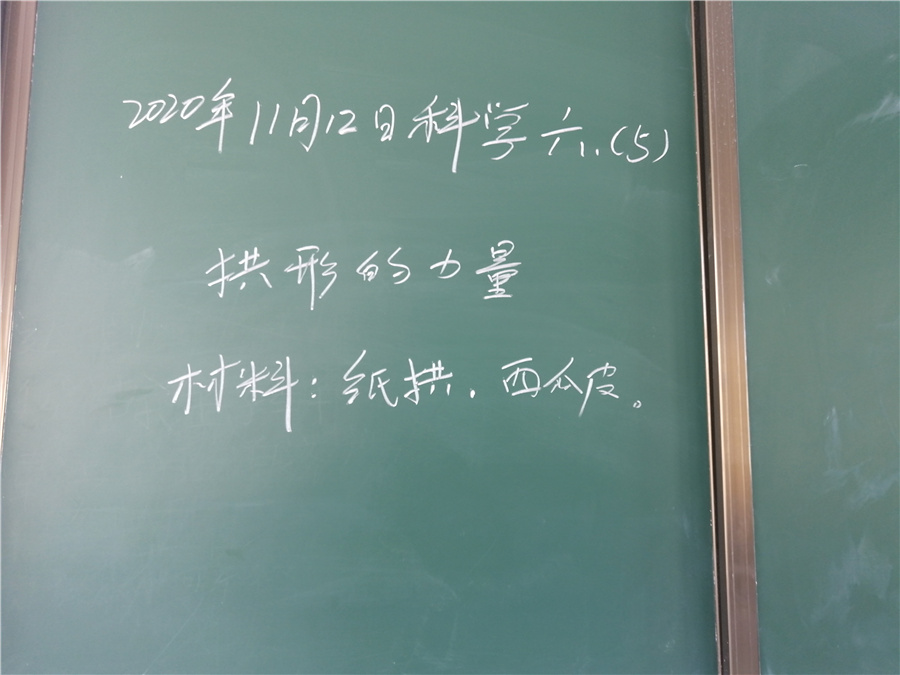 2020年11月12日科学六.(5)
拱形的力量
材料：纸拱．西瓜皮。